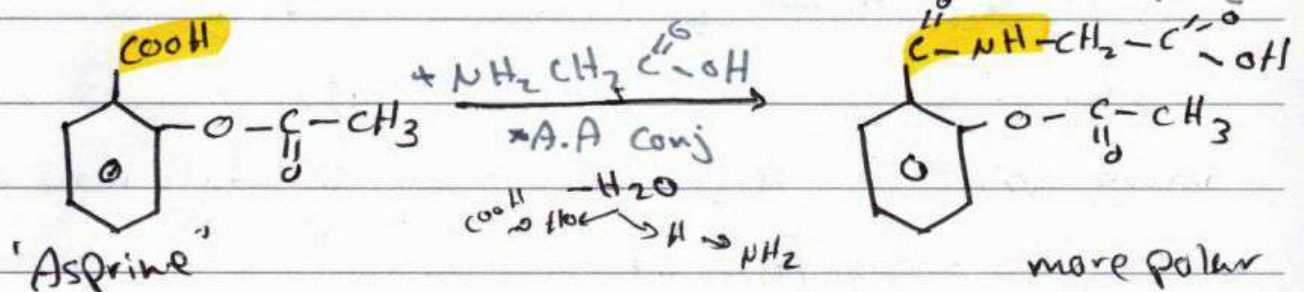 COOH
O-C-CH3
O
O
"Asprine"
+ NH2 CH2 C-OH
O
*A.A Conj
-H2O
COOH → HO
H → NH2
O
C-NH-CH2-C
O
OH
O-C-CH3
O
O
more polar